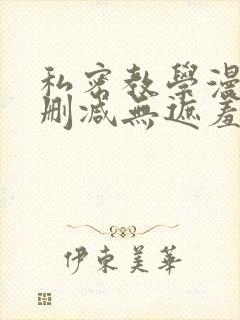 私密教學漫
刪減無遮羞
伊東美華